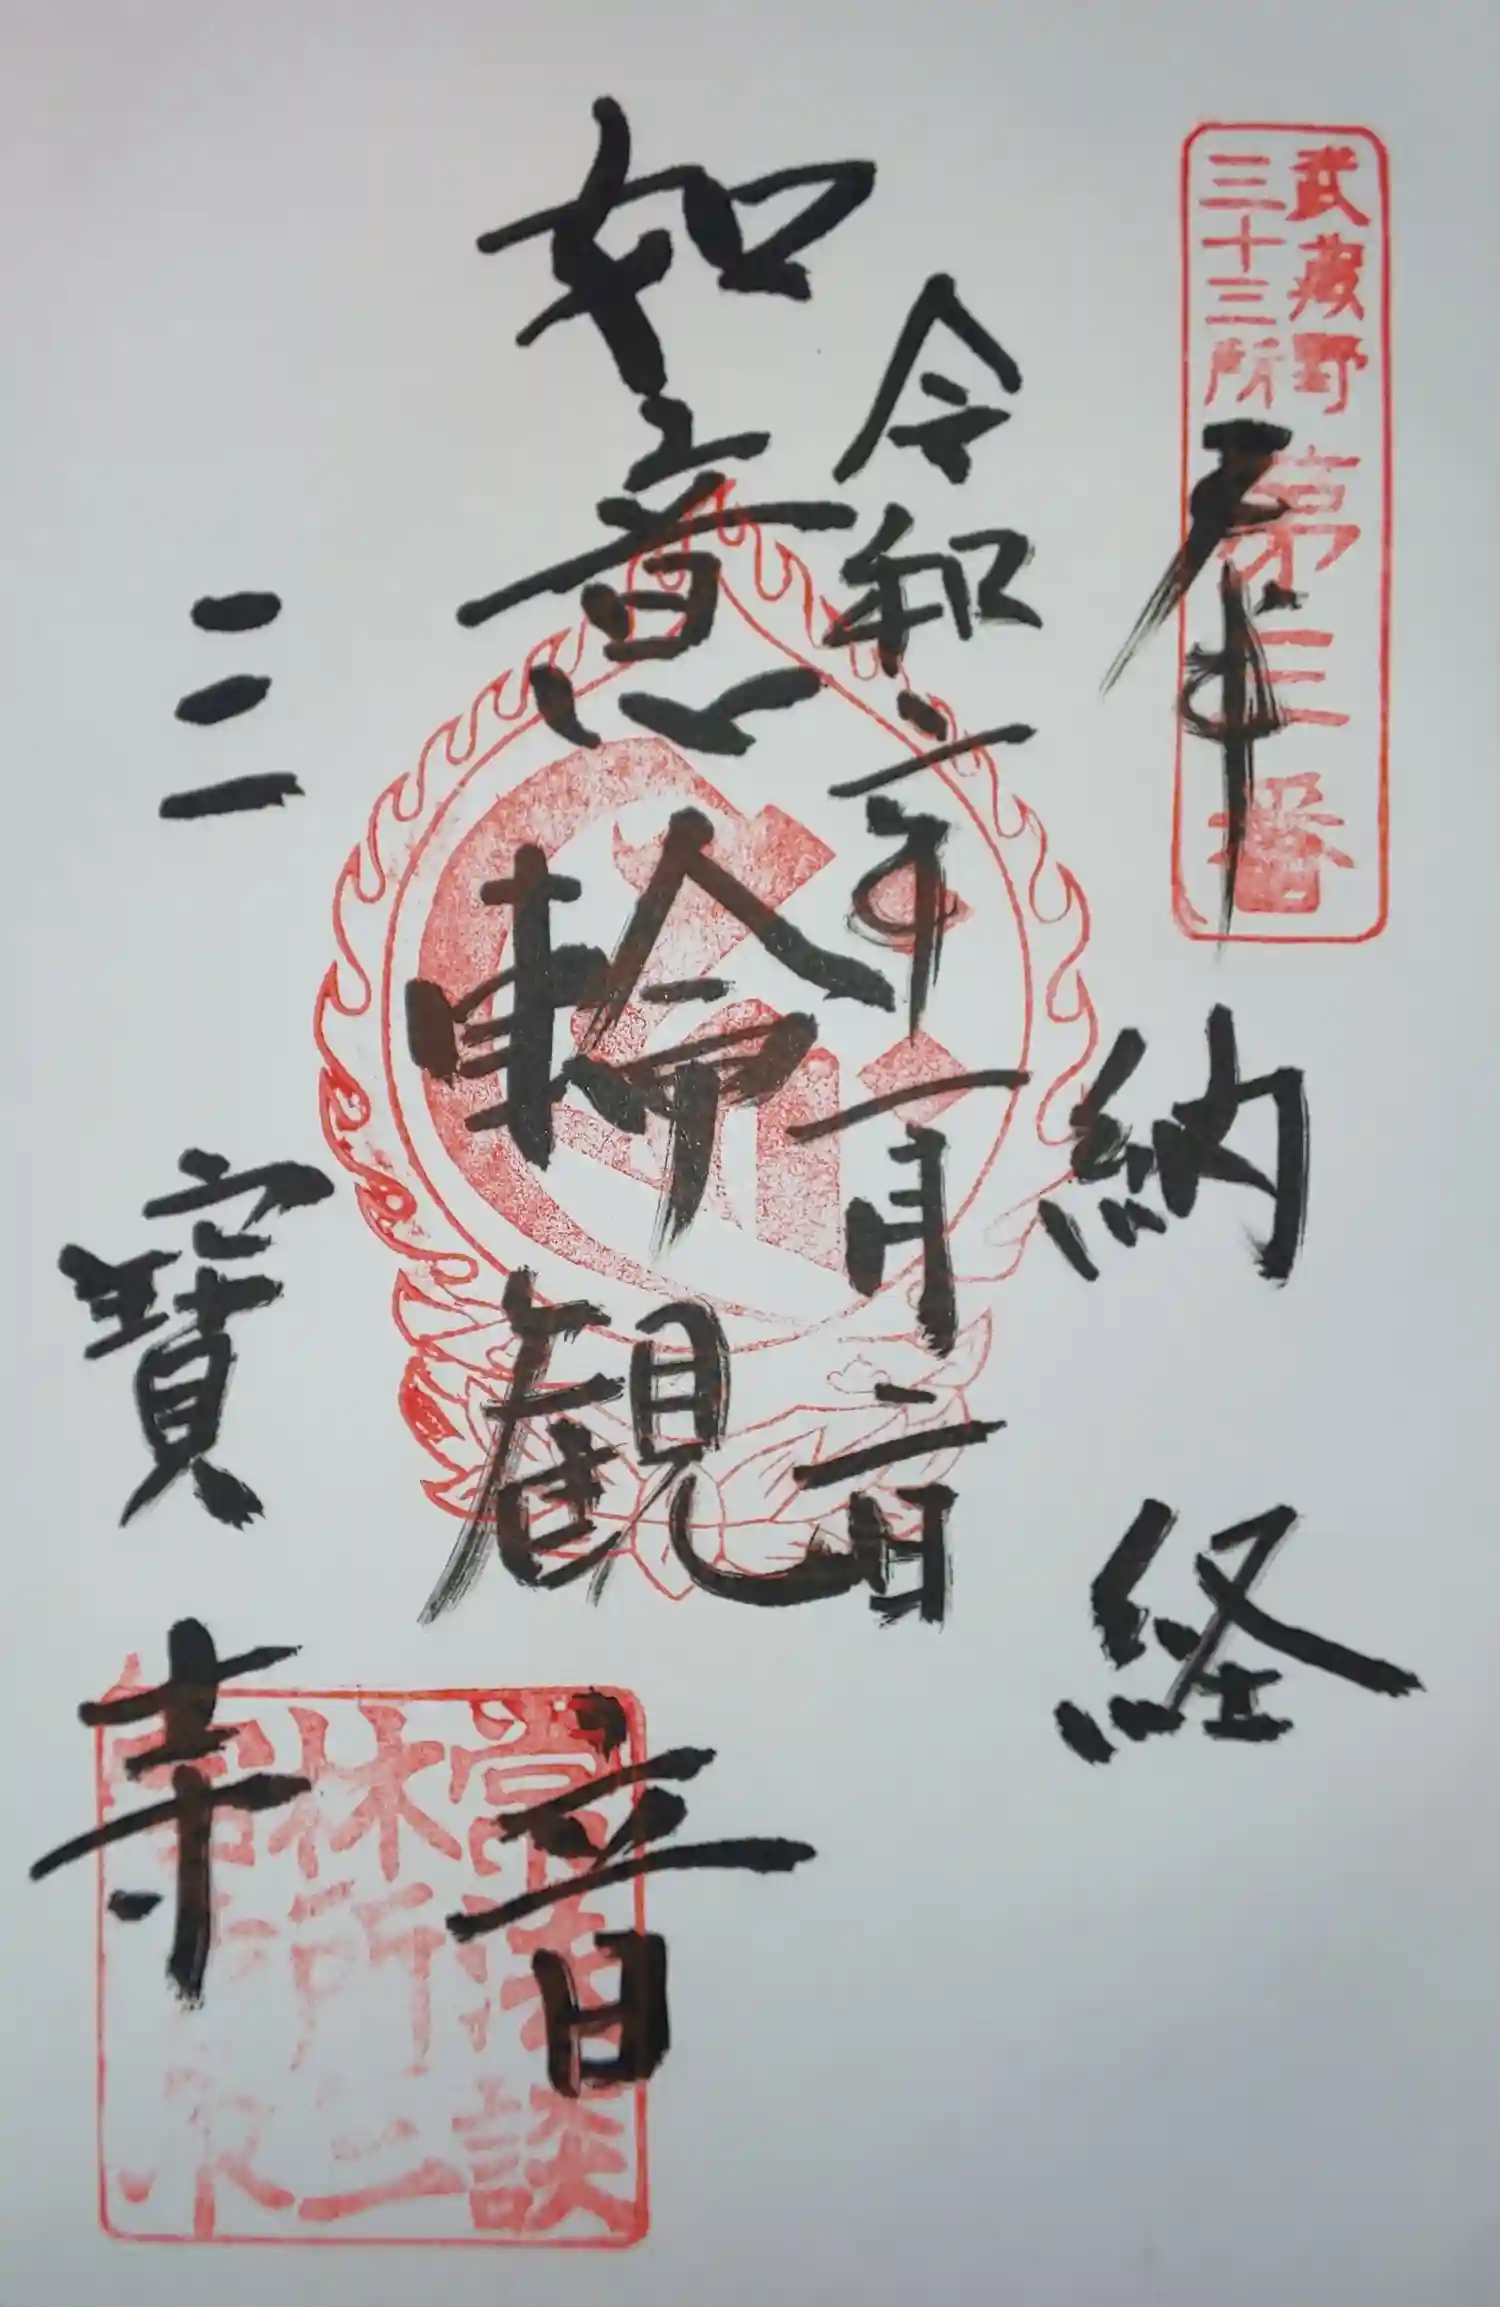 武蔵野
三十三所
第三番
奉納経
令和二年一月二日
如意輪観音
三寶寺
常法談
林所三